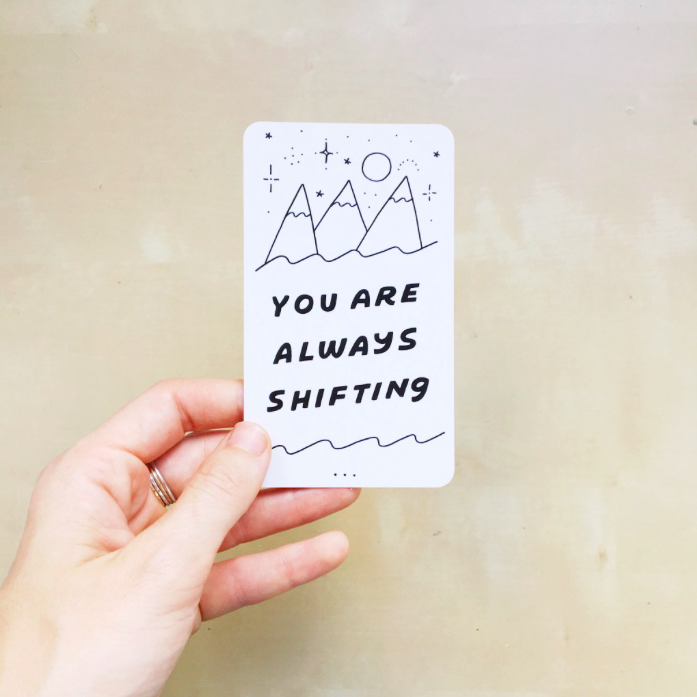 YOU ARE
ALWAYS
SHIFTING